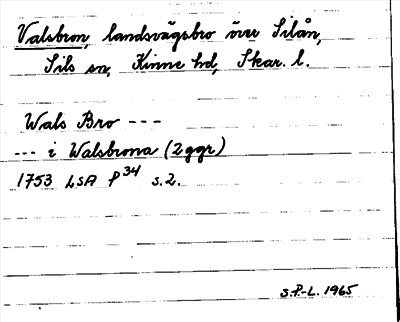 Valsbron, landsvägsbro över Silån,
Sils sn, Kinne hd, Skar. l.
Wals Bro ---
--- i Walsbrona (2 ggr)
1753 LSA P34 s. 2.
S.P.-L. 1965